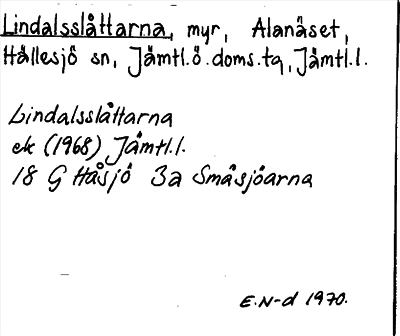 Lindalsslåttarna, myr, Alanäset,
Hällesjö sn, Jämtl.ö.doms.tg, Jämtl.l.
Lindalsslåttarna
ek (1968) Jämtl.l.
18 G Håsjö 3a Småsjöarna
E.N-d 1970.